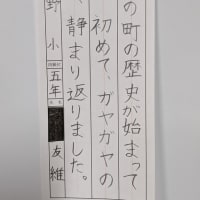 の町の歴史が始まって
初めて、ガヤガヤの
、静まり返りました。
野小
五年
友維